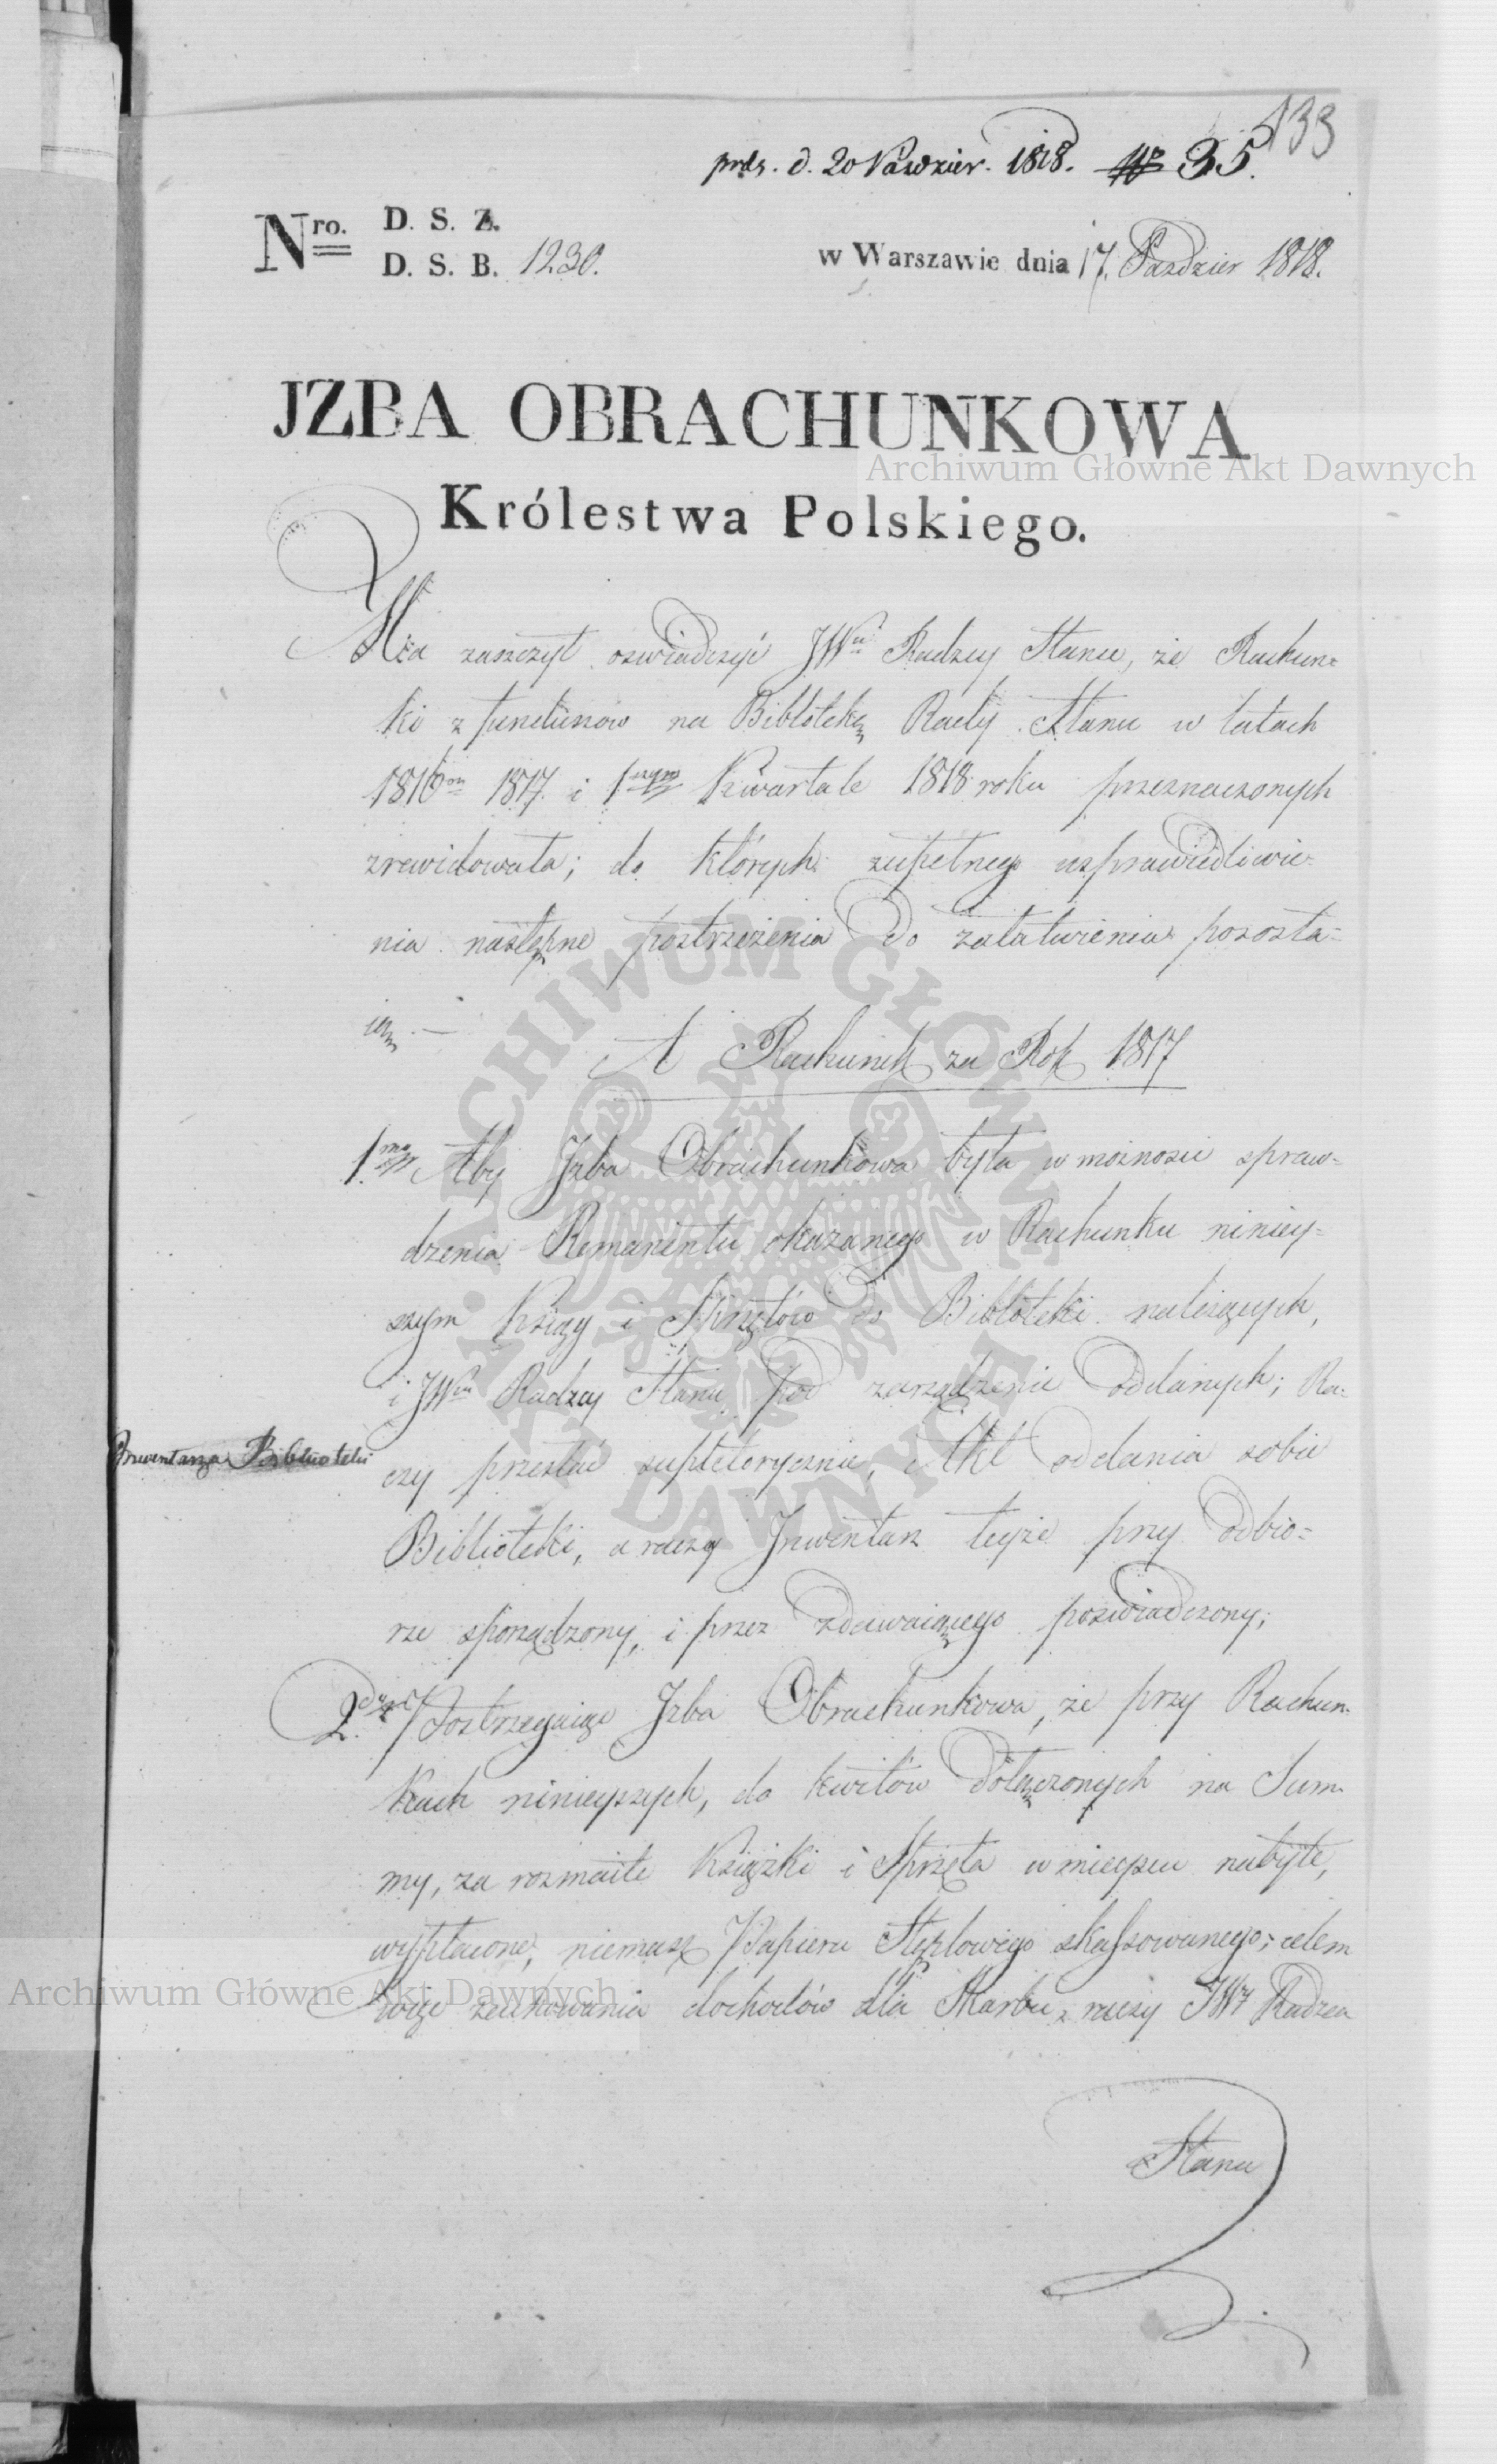 133
prds. d. 20 Paździer. 1818. № 35.
Nro. D. S. Z.
D. S. B. 1230.
w Warszawie dnia 17. Paździer 1818.
JZBA OBRACHUNKOWA
Archiwum Główne Akt Dawnych
Królestwa Polskiego.
Ma zaszczyt oswiadczyć JWu Radzcy Stanu, że Rachun=
ki z funduszów na Bibliotekę Rady Stanu w latach
1816m 1817. i 1szym Kwartale 1818 roku przeznaczonych
zrewidowała; do których zupełnego usprawiedliwie-
nia następne postrzeżenia do załatwienia pozosta=
ią. —
A Rachunek za Rok 1817
1mo Aby Jzba Obrachunkowa była w możności spraw=
dzenia Remanentu okazanego w Rachunku niniey=
szym Ksiąg i Sprzętów do Biblioteki należących,
i JWu Radzcy Stanu pod zarządzenie oddanych; Ra-
czy przesłać supletorycznie, Akt oddania sobie
Inwentarza Biblioteki
Biblioteki, a raczey Jnwentarz teyże przy odbio=
rze sporządzony, i przez zdawaiącego poświadczony;
2do Postrzegaiąc Jzba Obrachunkowa, że przy Rachun-
kach ninieyszych, do kwitów dołączonych na Sum-
my, za rozmaite Książki i Sprzęta w mieyscu nabyte,
wypłacone, niemasz Papieru Stęplowego skassowanego; celem
więc zachowania dochodów dla Skarbu, raczy JWy Radzca
Archiwum Główne Akt Dawnych
Stanu
ARCHIWUM GŁÓWNE AKT DAWNYCH